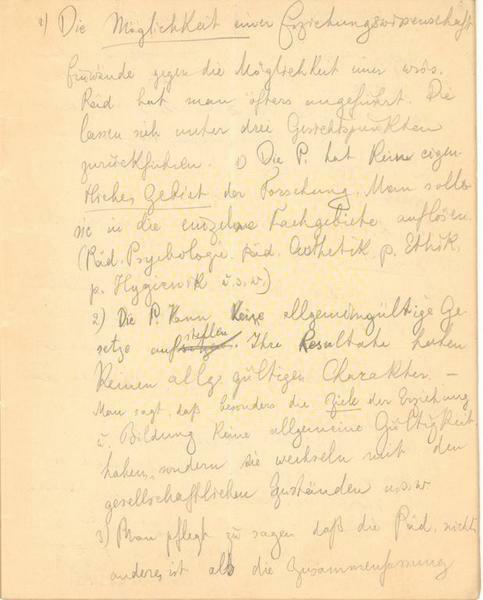 1) Die Möglichkeit einer Erziehungswissenschaft
Einwände gegen die Möglichkeit einer wiss.
Päd. hat man öfters angeführt. Die
lassen sich unter drei Gesichtspunkten
zurückführen. 1) Die P. hat keine eigen
tliches Gebiet der Forschung. Man solle
sie in die einzelne Fachgebiete auflösen.
(Päd. Psychologie, päd. Aesthetik, p. Ethik,
p. Hygienik u.s.w.)
2) Die P. kann keine allgemeingültige Ge
setze aufstellen. Ihre Resultate haben
keinen allg. gültigen Charakter. —
Man sagt, daß besonders die Ziele der Erziehung
u. Bildung keine allgemeine Gültigkeit
haben, sondern sie wechseln mit den
gesellschaftlichen Zuständen u.s.w
3) Man pflegt zu sagen daß die Päd. nichts
anderes ist als die Zusammenfassung